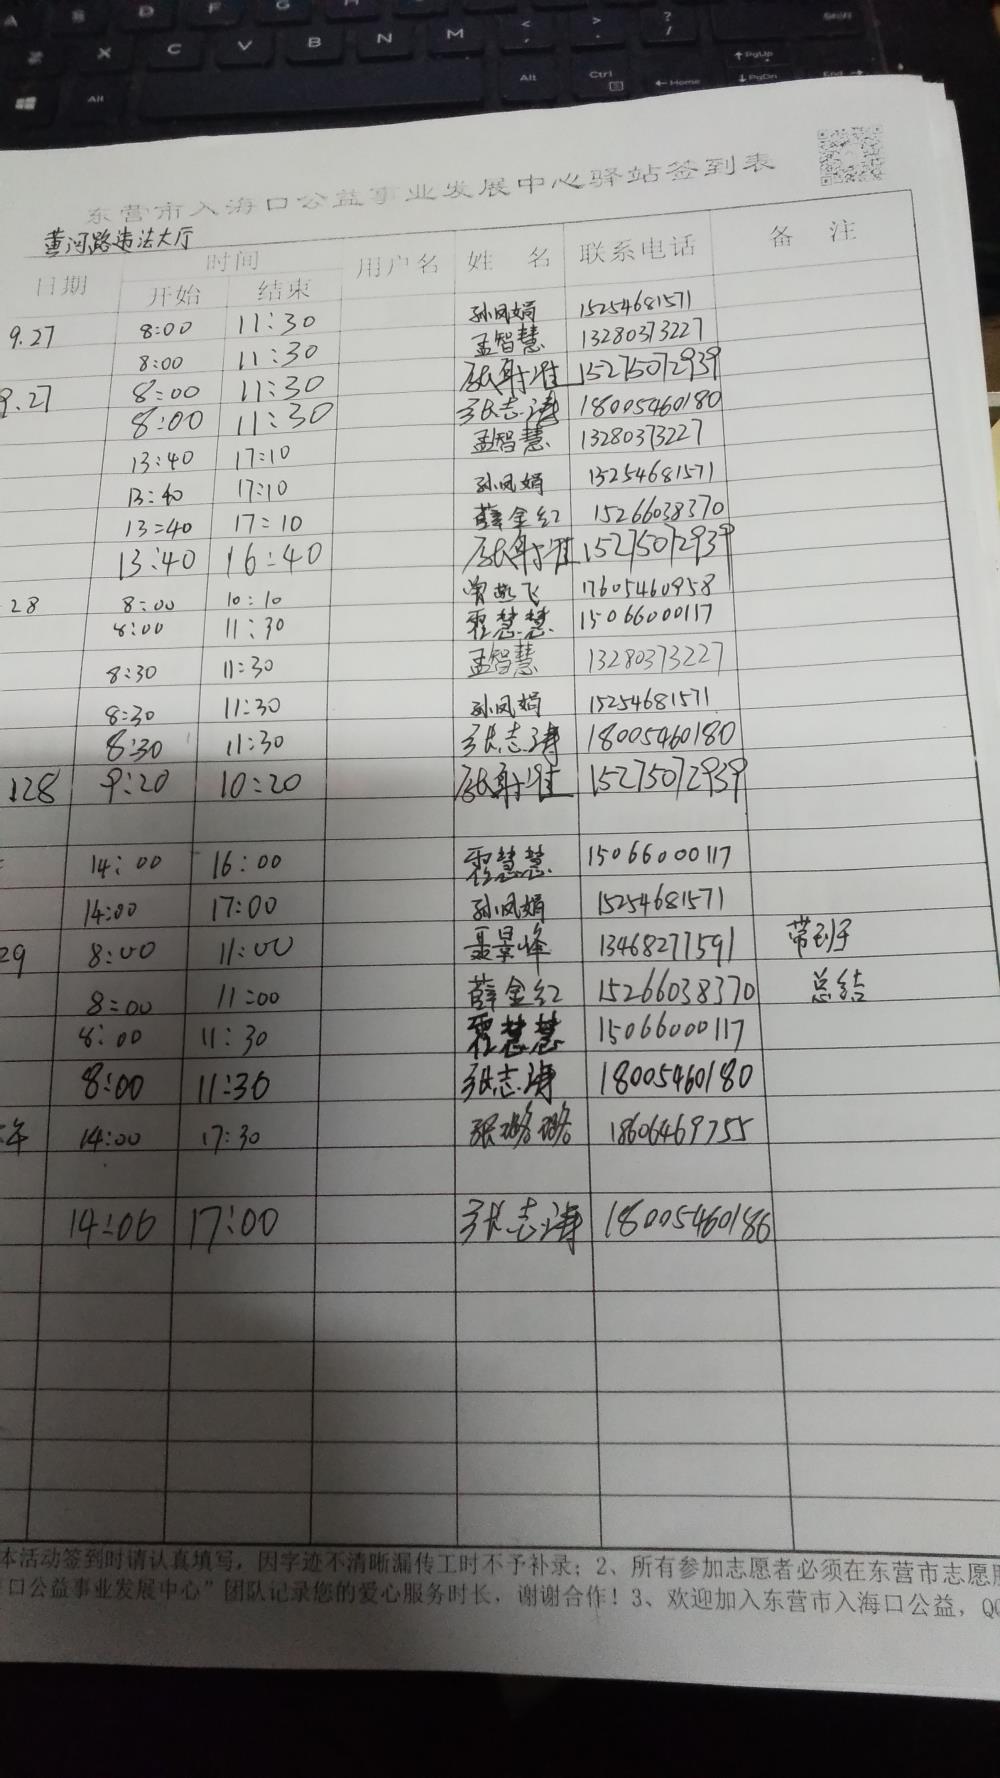 东营市入海口公益事业发展中心驿站签到表
黄河路违法大厅
日期 时间 用户名 姓名 联系电话 备注
开始 结束
9.27 8:00 11:30 孙凤娟 15254681571
8:00 11:30 孟智慧 13280373227
9.27 8:00 11:30 15275072939
8:00 11:30 张志涛 18005460180
13:40 17:10 孟智慧 13280373227
13:40 17:10 孙凤娟 15254681571
13:40 17:10 薛金红 15266038370
13:40 16:40 15275072939
28 8:00 10:10 曾燕飞 17605460958
8:00 11:30 霍慧慧 15066000117
8:30 11:30 孟智慧 13280373227
8:30 11:30 孙凤娟 15254681571
8:30 11:30 张志涛 18005460180
128 9:20 10:20 15275072939
14:00 16:00 霍慧慧 15066000117
14:00 17:00 孙凤娟 15254681571
29 8:00 11:00 聂景峰 13468277591
8:00 11:00 薛金红 15266038370 总结
8:00 11:30 霍慧慧 15066000117
8:00 11:30 张志涛 18005460180
午 14:00 17:30 张璐璐 18606469755
14:00 17:00 张志涛 18005460180
本活动签到时请认真填写，因字迹不清晰漏传工时不予补录；2、所有参加志愿者必须在东营市志愿服
口公益事业发展中心”团队记录您的爱心服务时长，谢谢合作！3、欢迎加入东营市入海口公益，QQ